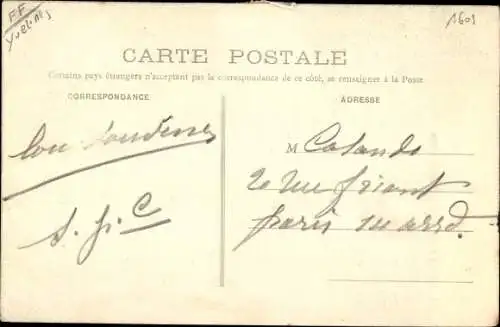 FF
Yvelines
1601
CARTE POSTALE
Certains pays étrangers n'acceptant pas la correspondance de ce côté, se renseigner à la Poste
CORRESPONDANCE
ADRESSE
M Calando
20 rue friant
paris 14 arrd.